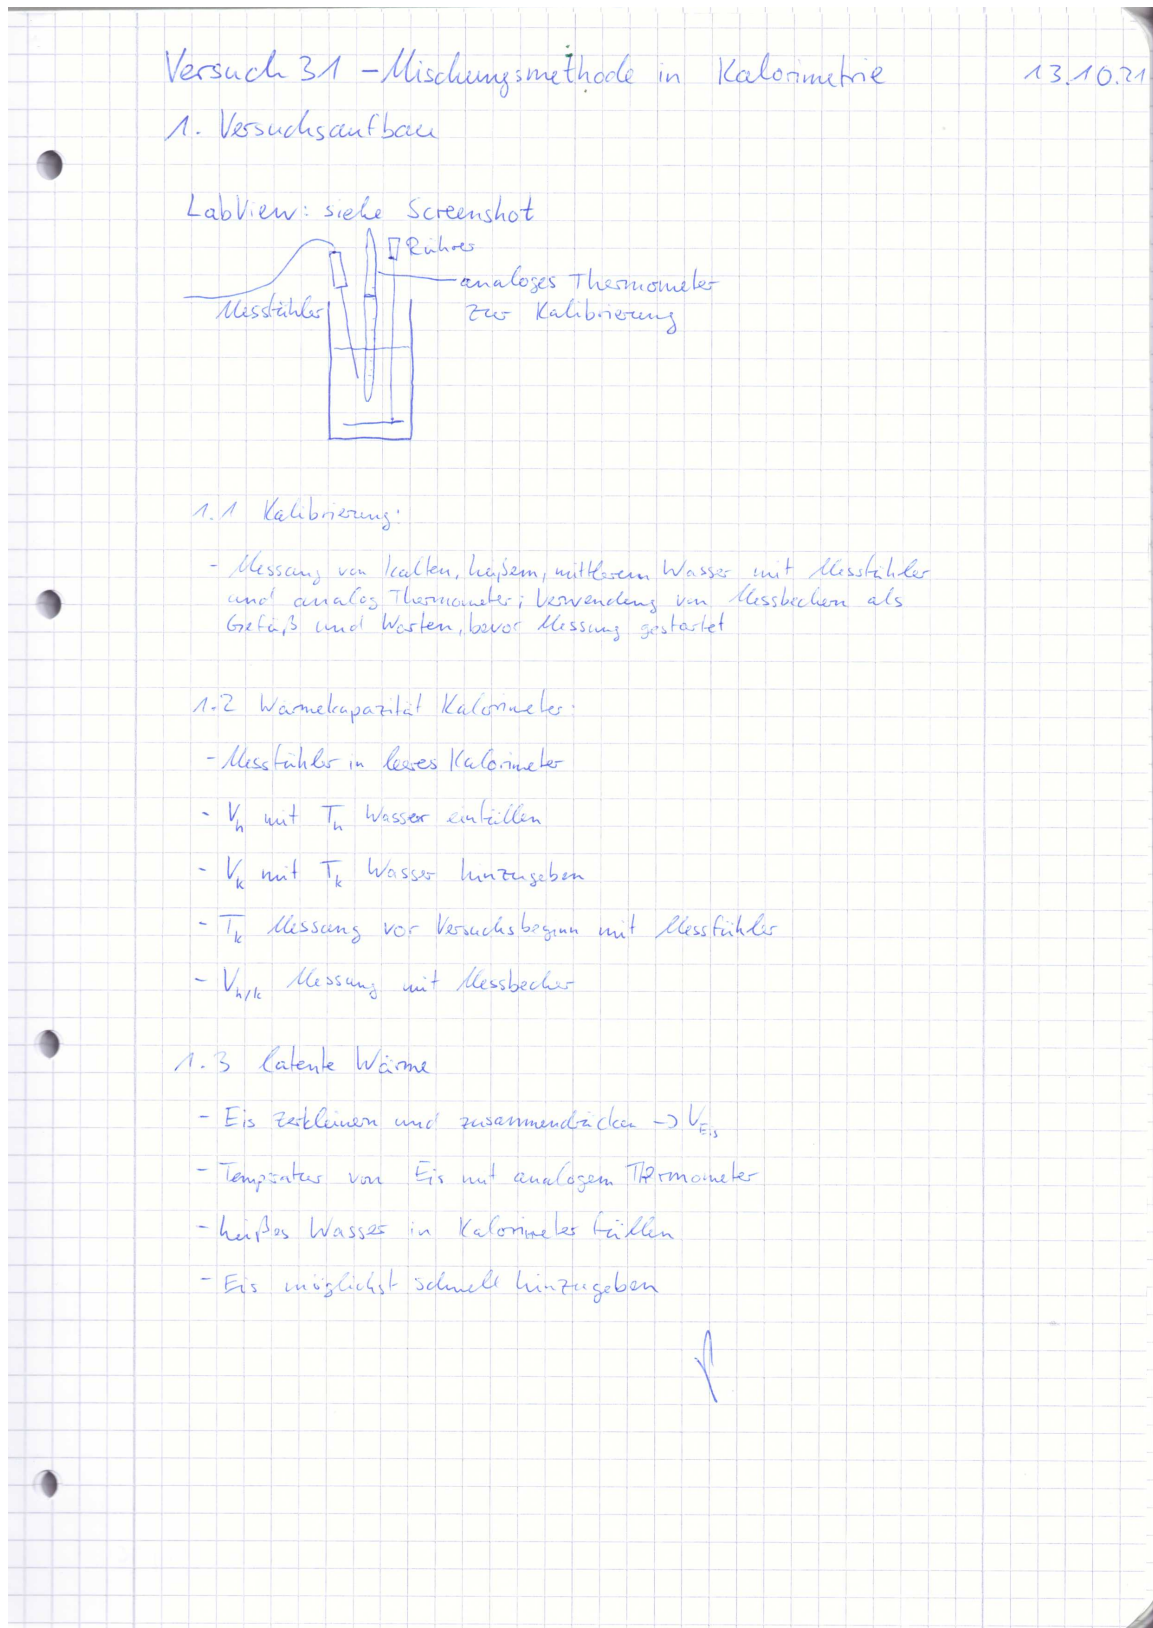 Versuch 31 - Mischungsmethode in Kalorimetrie 13.10.21
1. Versuchsaufbau
LabView: siehe Screenshot
Rührer
analoges Thermometer
zur Kalibrierung
Messfühler
1.1 Kalibrierung:
- Messung von kalten, heißem, mittlerem Wasser mit Messfühler
und analog Thermometer; Verwendung von Messbechern als
Gefäß und Warten, bevor Messung gestartet
1.2 Wärmekapazität Kalorimeter:
- Messfühler in leeres Kalorimeter
- V_h mit T_h Wasser einfüllen
- V_k mit T_k Wasser hinzugeben
- T_k Messung vor Versuchsbeginn mit Messfühler
- V_h/k Messung mit Messbecher
1.3 latente Wärme
- Eis zerkleinern und zusammendrücken -> V_Eis
- Temperatur von Eis mit analogem Thermometer
- heißes Wasser in Kalorimeter füllen
- Eis möglichst schnell hinzugeben